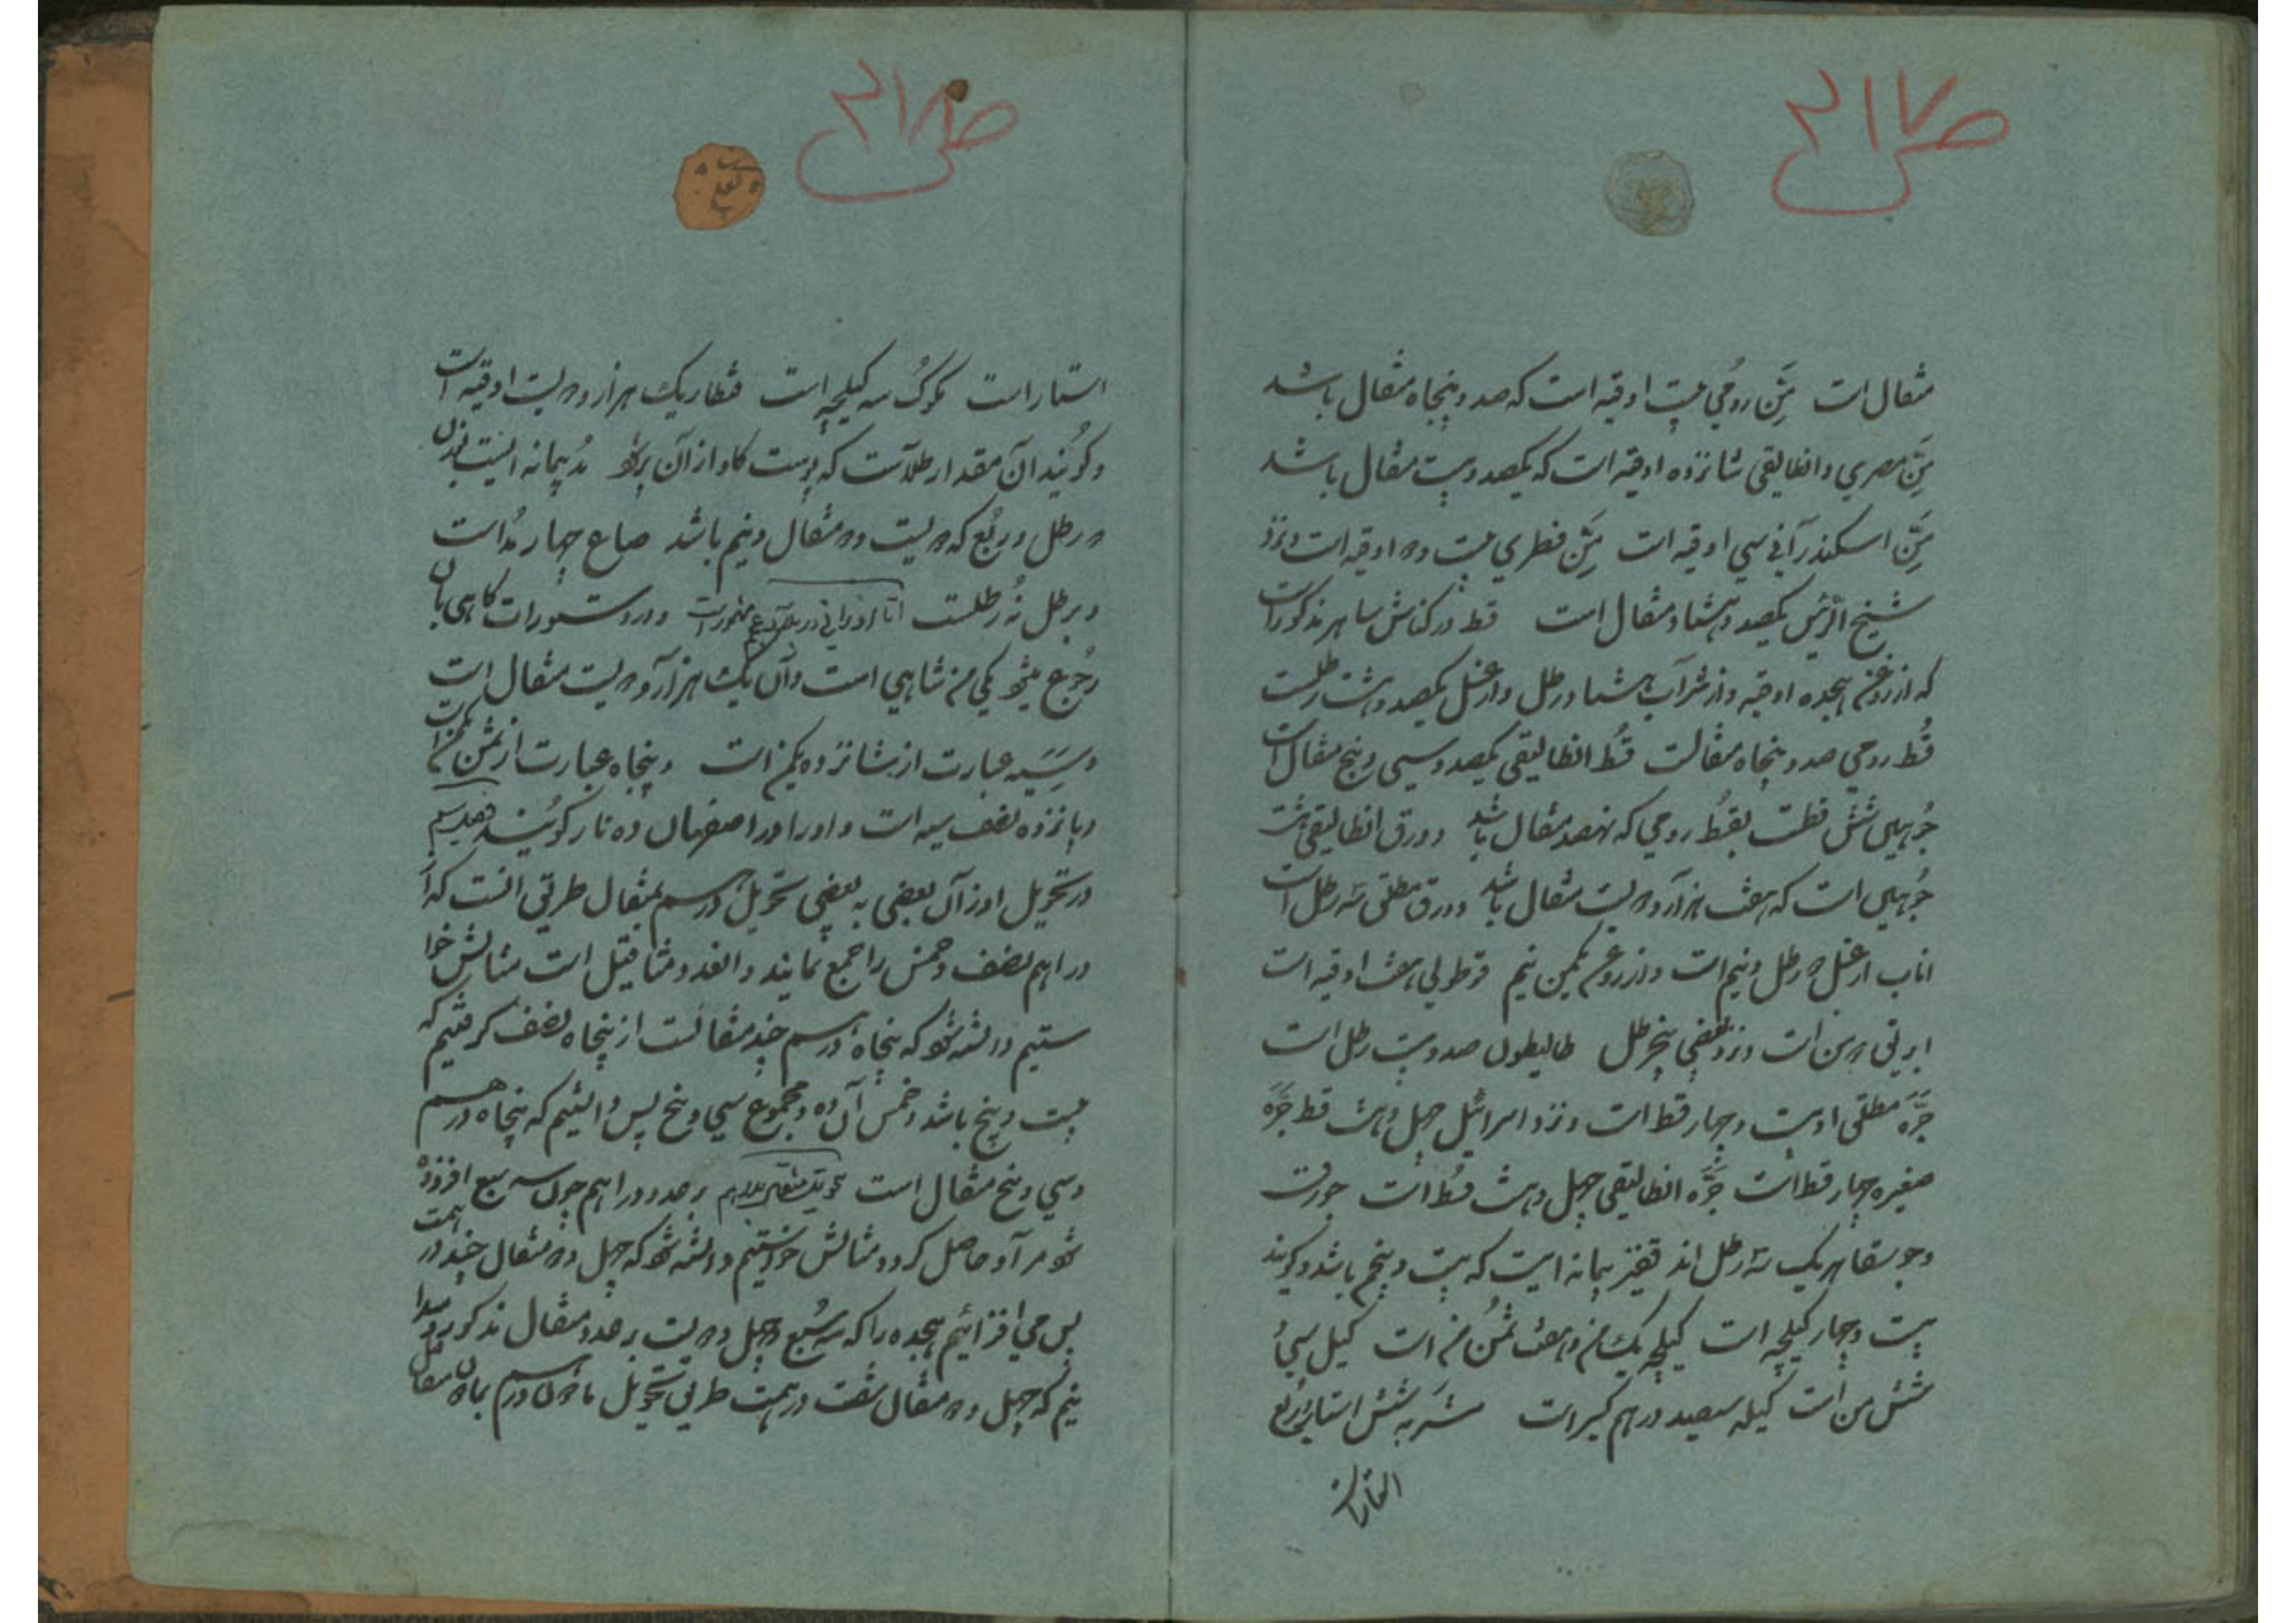 ص ۲۱۷
مثقال است مَنّ رومی بیست اوقیه است که صد و پنجاه مثقال باشد
مَنّ مصری و انطالیقی شانزده اوقیه است که یکصد و بیست مثقال باشد
مَنّ اسکندرانی سی اوقیه است مَنّ قطری بیست و دو اوقیه است و نزد
شیخ الرئیس یکصد و هشتاد مثقال است قط در کناش ساهر مذکور است
که از روغن هجده اوقیه و از شراب هشتاد رطل و از عسل یکصد و هشت رطلست
قُط رومی صد و پنجاه مثقالست قُط انطالیقی یکصد و سی و پنج مثقال است
جُوبیی شش قطست بقُط رومی که نهصد مثقال باشد دورق انطالیقی هشت
جُوبیی است که هفت هزار و دویست مثقال باشد دورق مطلق سه رطل است
اناب از عسل دو رطل و نیم است و از روغن یکمن نیم قوطولی هفت اوقیه است
ابریق دو من است و نزد بعضی پنج رطل طالیطون صد و بیست رطل است
جَرّه مطلق او بیست و چهار قط است و نزد اسرائیل چهل و هشت قط جَرّه
صغیره چهار قط است جَرّه انطالیقی چهل و هشت قُط است جورقت
و جوسقا هر یک سه رطل اند قفیز پیمانه ایست که بیست و پنجم باشد و گویند
بیست و چهار کیلجه است کیلجه یک من و هفت ثمُن من است کیل سی و
شش من است کیله سیصد درهم کبیر است شربه شش استار و ربع
استار است
ص ۲۱۸
استار است مکوک سه کیلجه است قنطار یک هزار و دویست اوقیه است
و گویند آن مقدار طلاست که پوست گاو از آن پر شود مُد پیمانه ایست بوزن
دو رطل و ربُع که دویست و دو مثقال و نیم باشد صاع چهار مُد است
و برطل نُه رطلست اما اوزانی در بلاد عجم مشهور است و در دستورات گاهی بآن
رجوع میشود یکی من شاهی است و آن یک هزار و دویست مثقال است
و سیّه عبارت از شانزده یکمن است و پنجاه عبارت از ثمن من است
و پانزده نصف سیه است و او را در اصفهان ده نار گویند
در تحویل اوزان بعضی به بعضی تحویل درهم بمثقال طریق آنست که از
دراهم نصف و خمس را جمع نمایند و العدد مثاقیل است مثالش خوا
ستیم دانسته شود که پنجاه درهم چند مثقالست از پنجاه نصف گرفتیم که
بیست و پنج باشد و خمس آن ده و مجموع سی و پنج پس دانستیم که پنجاه درهم
و سی و پنج مثقال است تحویل مثقال بدرهم بر عدد دراهم چون سه سبع افزوده
شود مراد حاصل گردد مثالش خواستیم دانسته شود که چهل و دو مثقال چند درهمست
پس می افزائیم هجده را که سه سُبع چهل و دو است بر عدد مثقال مذکور و میدا
نیم که چهل و دو مثقال شصت درهمست طریق تحویل مادون درهم بمادون مثقال